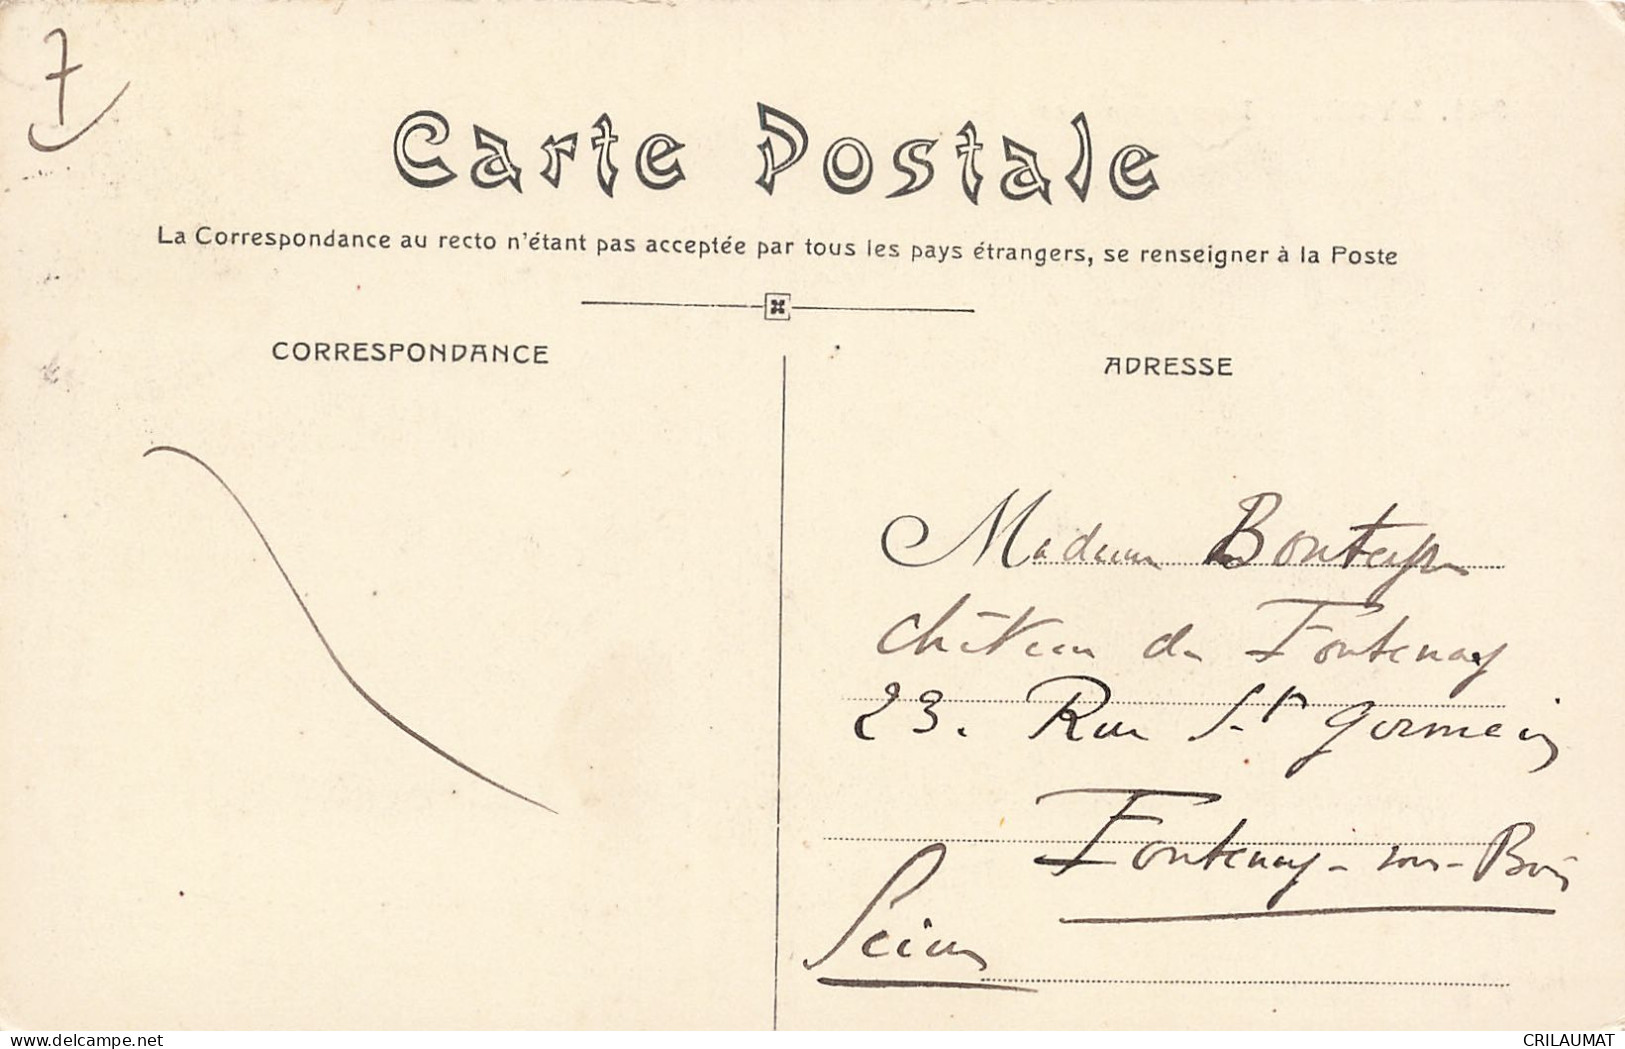 7
Carte Postale
La Correspondance au recto n'étant pas acceptée par tous les pays étrangers, se renseigner à la Poste
CORRESPONDANCE
ADRESSE
Madame
Château de Fontenay
23. Rue St Germain
Fontenay-sous-Bois
Seine
delcampe.net
CRILAUMAT